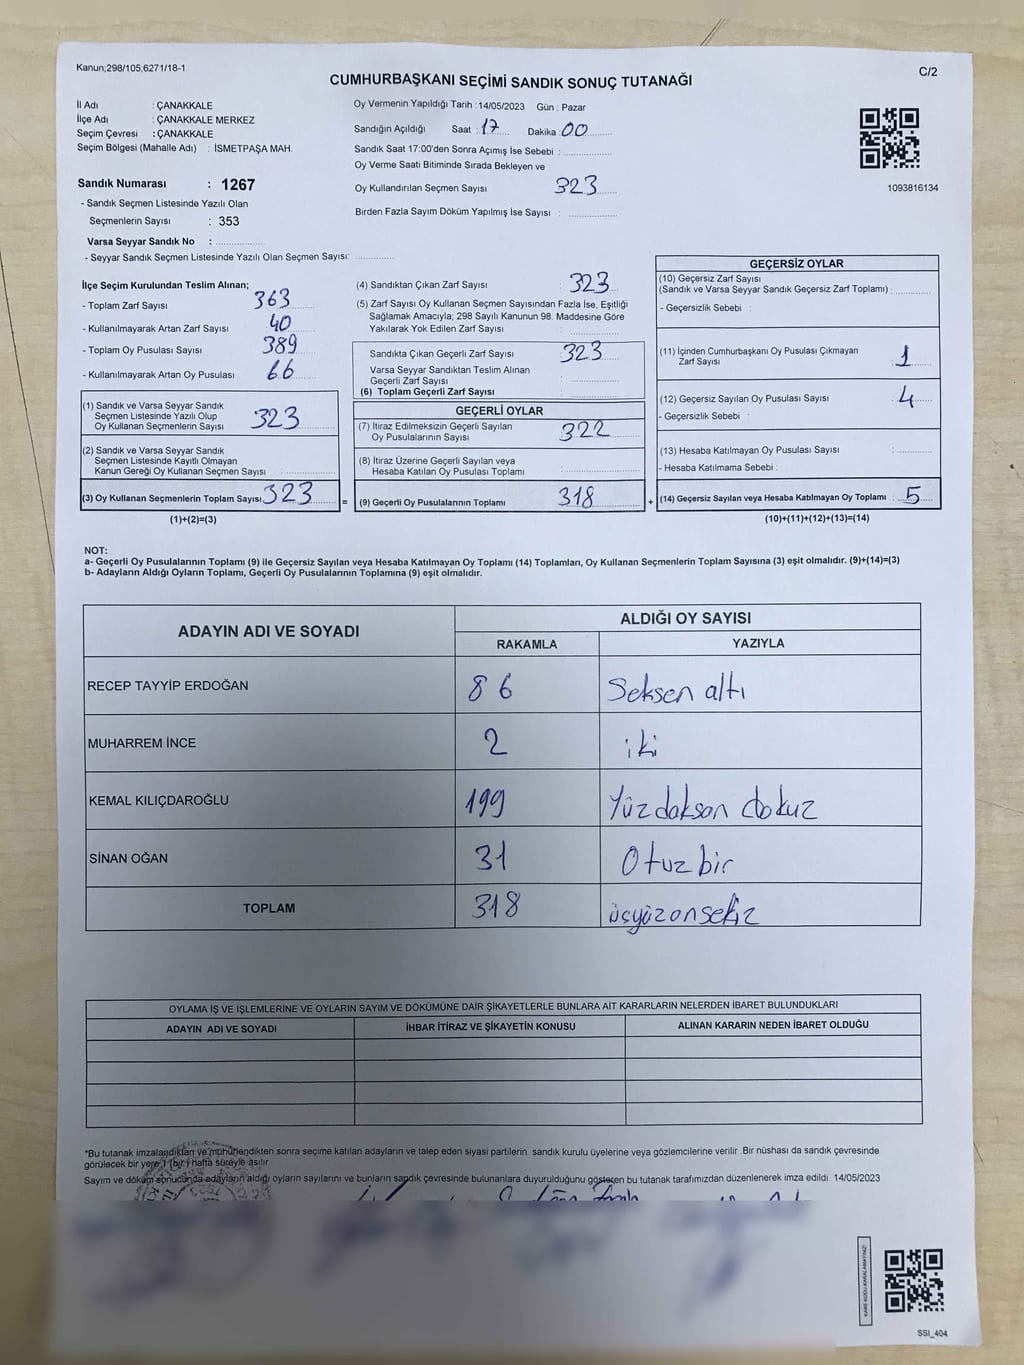 Kanun;298/105,6271/18-1
C/2
CUMHURBAŞKANI SEÇİMİ SANDIK SONUÇ TUTANAĞI
İl Adı : ÇANAKKALE
İlçe Adı : ÇANAKKALE MERKEZ
Seçim Çevresi : ÇANAKKALE
Seçim Bölgesi (Mahalle Adı) : İSMETPAŞA MAH.
Sandık Numarası : 1267
- Sandık Seçmen Listesinde Yazılı Olan
Seçmenlerin Sayısı : 353
Varsa Seyyar Sandık No :
- Seyyar Sandık Seçmen Listesinde Yazılı Olan Seçmen Sayısı:
Oy Vermenin Yapıldığı Tarih : 14/05/2023 Gün : Pazar
Sandığın Açıldığı Saat : 17 Dakika : 00
Sandık Saat 17:00'den Sonra Açımış İse Sebebi :
Oy Verme Saati Bitiminde Sırada Bekleyen ve
Oy Kullandırılan Seçmen Sayısı 323
Birden Fazla Sayım Döküm Yapılmış İse Sayısı :
1093816134
İlçe Seçim Kurulundan Teslim Alınan;
- Toplam Zarf Sayısı 363
- Kullanılmayarak Artan Zarf Sayısı 40
- Toplam Oy Pusulası Sayısı 389
- Kullanılmayarak Artan Oy Pusulası 66
(1) Sandık ve Varsa Seyyar Sandık
Seçmen Listesinde Yazılı Olup
Oy Kullanan Seçmenlerin Sayısı 323
(2) Sandık ve Varsa Seyyar Sandık
Seçmen Listesinde Kayıtlı Olmayan
Kanun Gereği Oy Kullanan Seçmen Sayısı :
(3) Oy Kullanan Seçmenlerin Toplam Sayısı 323
(1)+(2)=(3)
=
(4) Sandıktan Çıkan Zarf Sayısı 323
(5) Zarf Sayısı Oy Kullanan Seçmen Sayısından Fazla İse, Eşitliği
Sağlamak Amacıyla; 298 Sayılı Kanunun 98. Maddesine Göre
Yakılarak Yok Edilen Zarf Sayısı :
Sandıkta Çıkan Geçerli Zarf Sayısı : 323
Varsa Seyyar Sandıktan Teslim Alınan
Geçerli Zarf Sayısı :
(6) Toplam Geçerli Zarf Sayısı :
GEÇERLİ OYLAR
(7) İtiraz Edilmeksizin Geçerli Sayılan
Oy Pusulalarının Sayısı 322
(8) İtiraz Üzerine Geçerli Sayılan veya
Hesaba Katılan Oy Pusulası Toplamı :
(9) Geçerli Oy Pusulalarının Toplamı 318
+
GEÇERSİZ OYLAR
(10) Geçersiz Zarf Sayısı
(Sandık ve Varsa Seyyar Sandık Geçersiz Zarf Toplamı) :
- Geçersizlik Sebebi :
(11) İçinden Cumhurbaşkanı Oy Pusulası Çıkmayan
Zarf Sayısı : 1
(12) Geçersiz Sayılan Oy Pusulası Sayısı 4
- Geçersizlik Sebebi :
(13) Hesaba Katılmayan Oy Pusulası Sayısı :
- Hesaba Katılmama Sebebi :
(14) Geçersiz Sayılan veya Hesaba Katılmayan Oy Toplamı : 5
(10)+(11)+(12)+(13)=(14)
NOT:
a- Geçerli Oy Pusulalarının Toplamı (9) ile Geçersiz Sayılan veya Hesaba Katılmayan Oy Toplamı (14) Toplamları, Oy Kullanan Seçmenlerin Toplam Sayısına (3) eşit olmalıdır. (9)+(14)=(3)
b- Adayların Aldığı Oyların Toplamı, Geçerli Oy Pusulalarının Toplamına (9) eşit olmalıdır.
ADAYIN ADI VE SOYADI
ALDIĞI OY SAYISI
RAKAMLA YAZIYLA
RECEP TAYYİP ERDOĞAN 86 Seksen altı
MUHARREM İNCE 2 iki
KEMAL KILIÇDAROĞLU 199 Yüzdoksan dokuz
SİNAN OĞAN 31 Otuz bir
TOPLAM 318 üçyüzonsekiz
OYLAMA İŞ VE İŞLEMLERİNE VE OYLARIN SAYIM VE DÖKÜMÜNE DAİR ŞİKAYETLERLE BUNLARA AİT KARARLARIN NELERDEN İBARET BULUNDUKLARI
ADAYIN ADI VE SOYADI İHBAR İTİRAZ VE ŞİKAYETİN KONUSU ALINAN KARARIN NEDEN İBARET OLDUĞU
*Bu tutanak imzalandıktan ve mühürlendikten sonra seçime katılan adayların ve talep eden siyasi partilerin sandık kurulu üyelerine veya gözlemcilerine verilir .Bir nüshası da sandık çevresinde
görülecek bir yere 1 (bir) hafta süreyle asılır
Sayım ve döküm sonucunda adayların aldığı oyların sayılarını ve bunların sandık çevresinde bulunanlara duyurulduğunu gösteren bu tutanak tarafımızdan düzenlenerek imza edildi. 14/05/2023
SSI_404